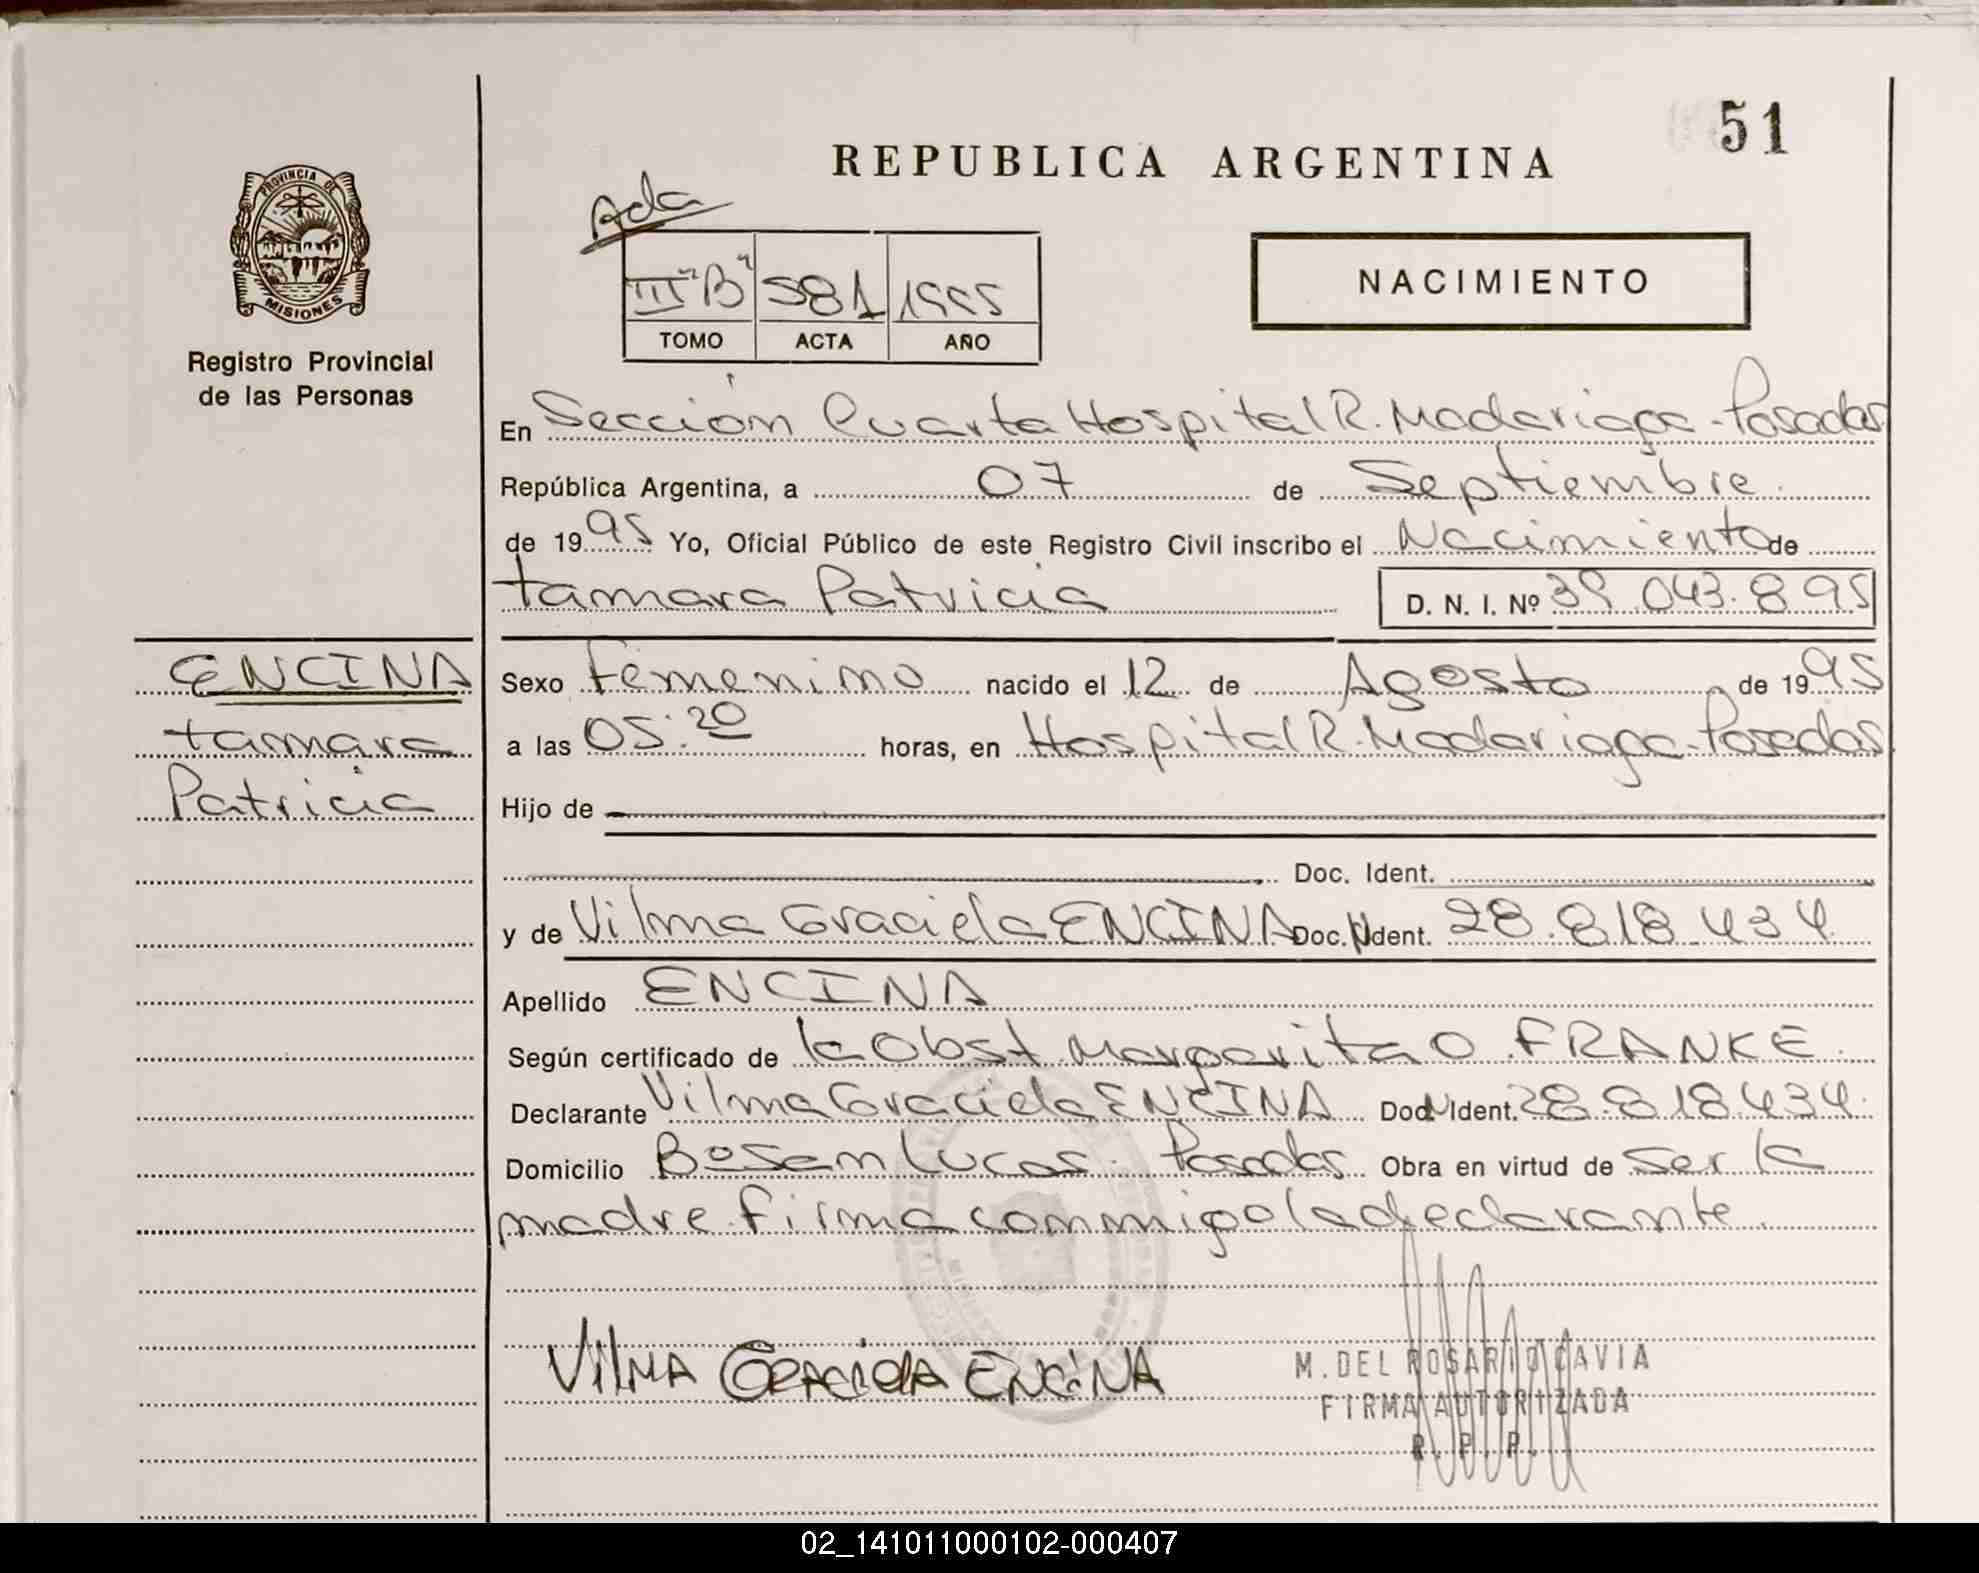 51
REPUBLICA ARGENTINA
PROVINCIA DE
MISIONES
Registro Provincial
de las Personas
Ada
III "B" 581 1995
TOMO ACTA AÑO
NACIMIENTO
En Sección Cuarta Hospital R. Madariaga - Posadas
República Argentina, a 07 de Septiembre
de 1995 Yo, Oficial Público de este Registro Civil inscribo el Nacimiento de
Tamara Patricia D. N. I. Nº 39.043.895
ENCINA
Tamara
Patricia
Sexo Femenino nacido el 12 de Agosto de 1995
a las 05:20 horas, en Hospital R. Madariaga - Posadas
Hijo de
Doc. Ident.
y de Vilma Graciela ENCINA Doc. Ident. 28.818.434
Apellido ENCINA
Según certificado de la Obst Margarita O. FRANKE
Declarante Vilma Graciela ENCINA Doc. Ident. 28.818.434
Domicilio Bº San Lucas - Posadas Obra en virtud de Ser la
madre. Firma conmigo la declarante.
VILMA GRACIELA ENCINA
M. DEL ROSARIO CAVIA
FIRMA AUTORIZADA
R. P. P.
02_141011000102-000407